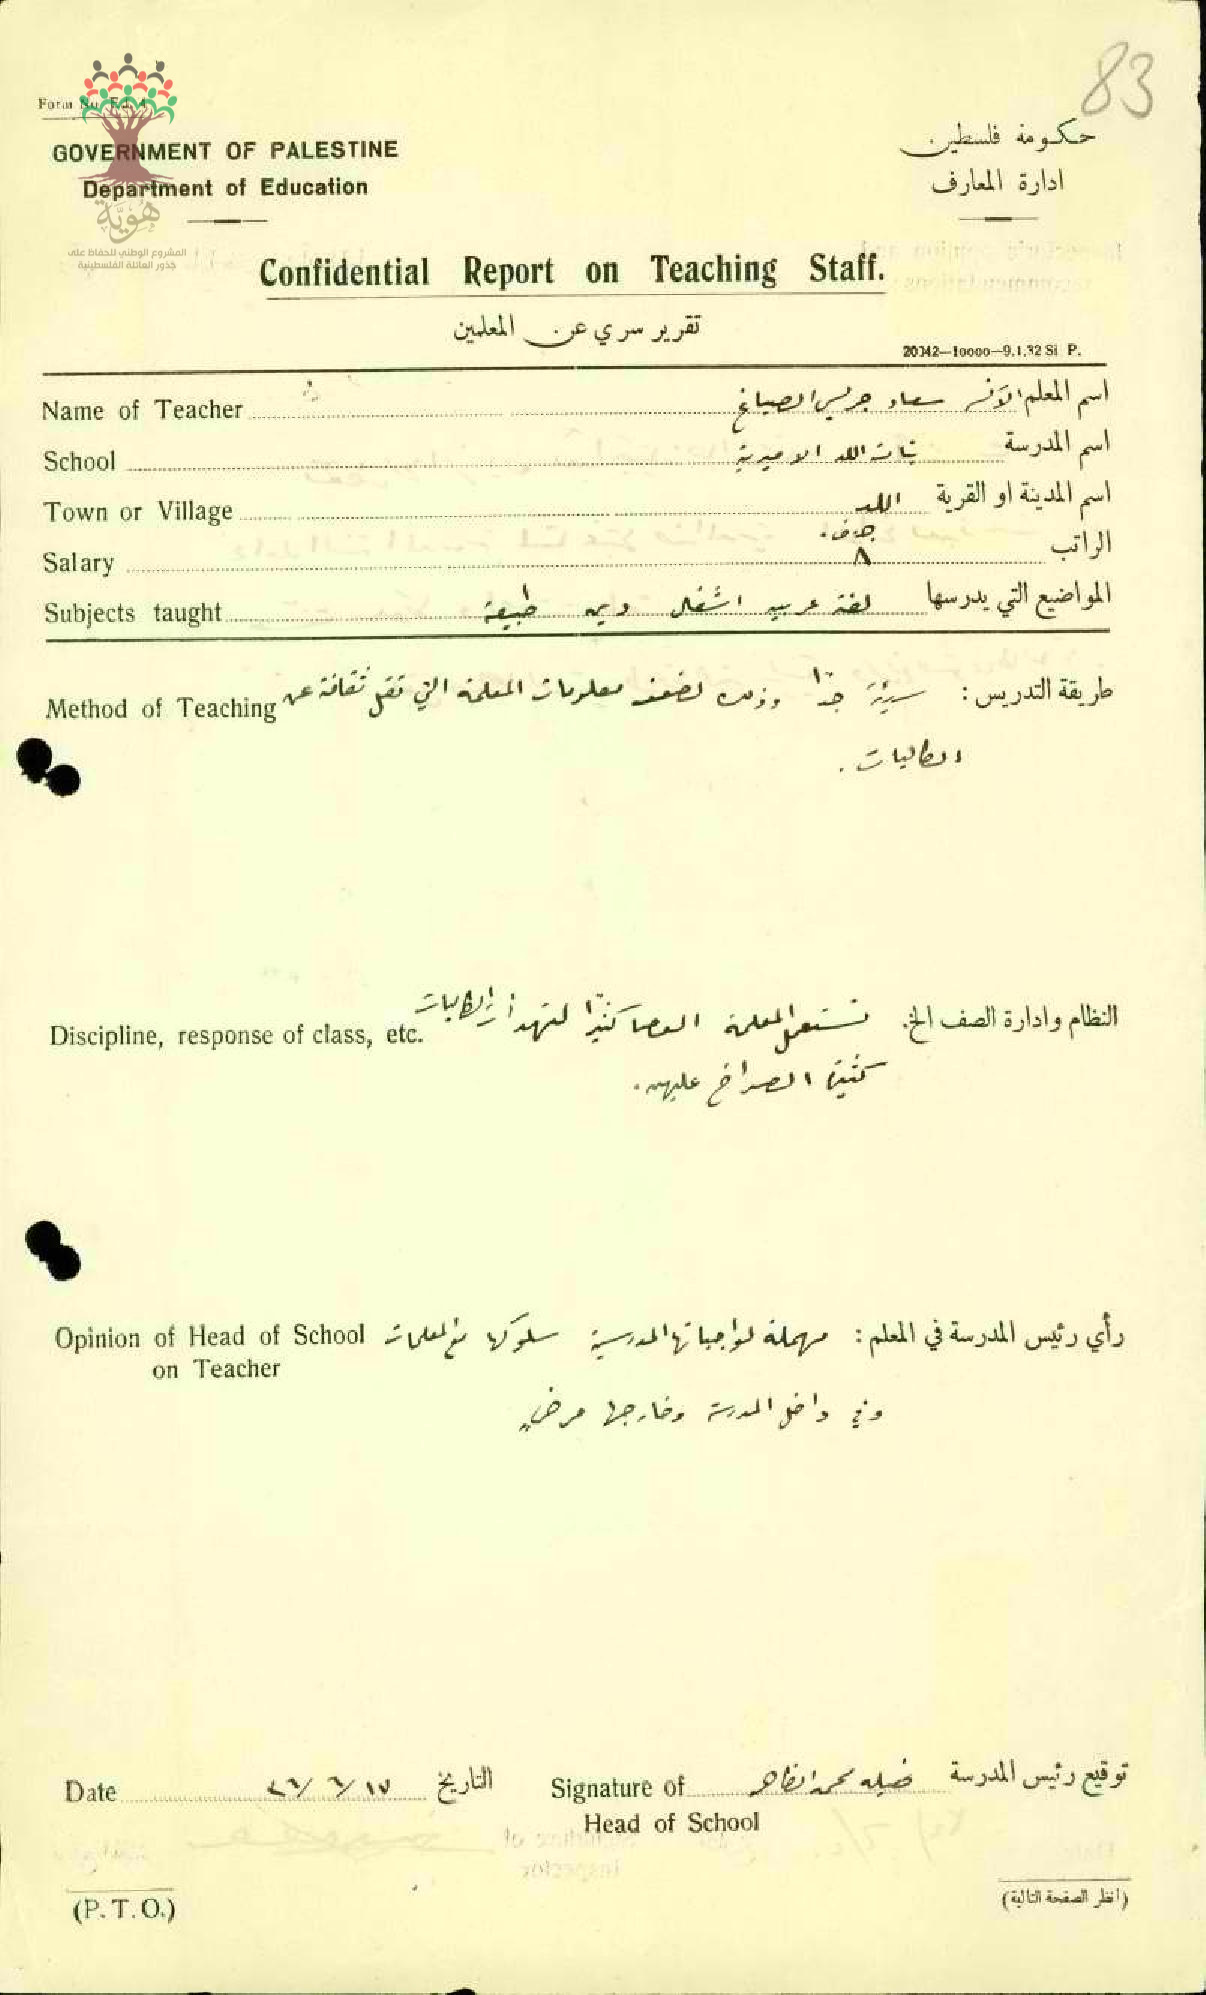 83
Form No. Ed. 4
GOVERNMENT OF PALESTINE
Department of Education
حكومة فلسطين
ادارة المعارف
هُوِيَّة
المشروع الوطني للحفاظ على
جذور العائلة الفلسطينية
Confidential Report on Teaching Staff.
تقرير سري عن المعلمين
20342—10000—9.1.32 Si P.
Name of Teacher الآنسة سعاد جريس الصباغ اسم المعلم
School بنات اللد الاميرية اسم المدرسة
Town or Village اللد اسم المدينة او القرية
Salary ٨ الراتب
Subjects taught لغة عربية اشغال دين طبيعة المواضيع التي يدرسها
Method of Teaching طريقة التدريس: سيئة جدًا وذلك لضعف معلومات المعلمة التي تقل ثقافة عن
الطالبات.
Discipline, response of class, etc. النظام وادارة الصف الخ. تستعمل المعلمة العصا كثيرًا الطالبات
كثيرة الصراخ عليهن.
Opinion of Head of School رأي رئيس المدرسة في المعلم: مهملة لواجباتها المدرسية سلوكها مع المعلمات
on Teacher
وفي داخل المدرسة وخارجها مرضٍ
Date ١٧/٦/٤٦ التاريخ Signature of محمد توقيع رئيس المدرسة
Head of School
(P. T. O.)
(انظر الصفحة التالية)